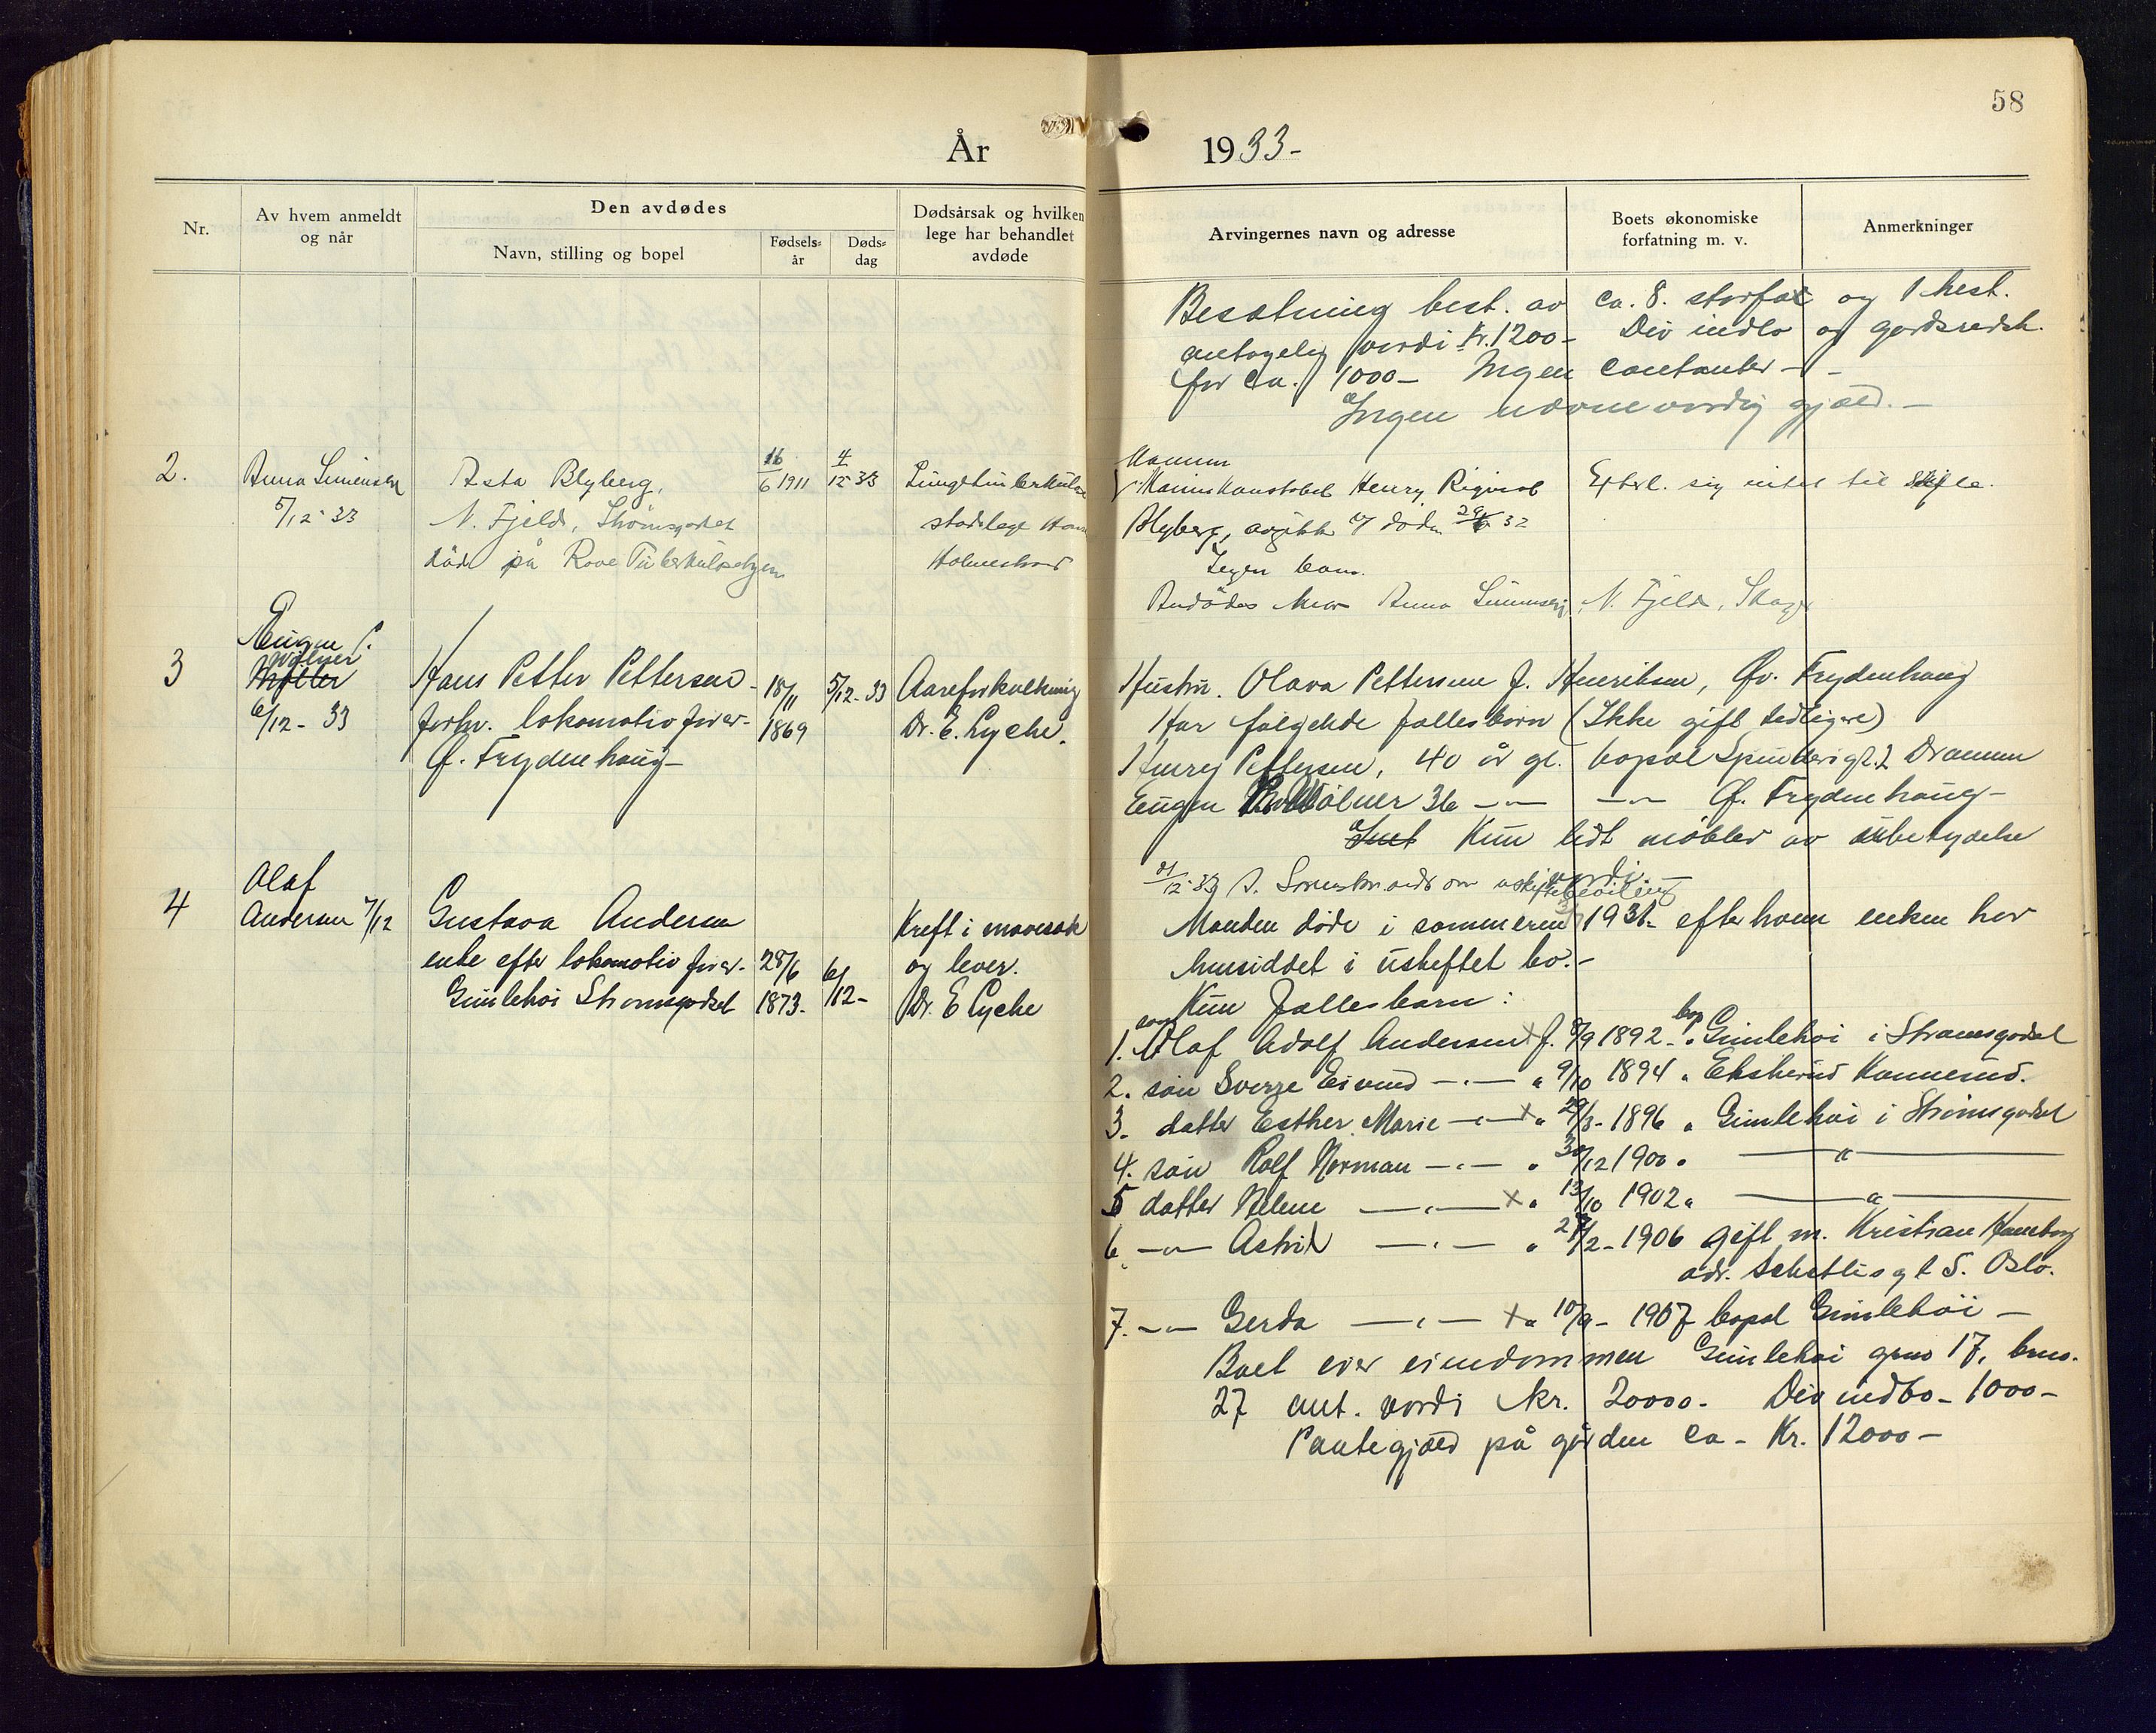 58
År 1933-
Nr.
Av hvem anmeldt og når
Den avdødes
Navn, stilling og bopel
Fødsels-år
Døds-dag
Dødsårsak og hvilken lege har behandlet avdøde
Arvingernes navn og adresse
Boets økonomiske forfatning m. v.
Anmerkninger
Besætning best. av ca. 8. storfæ og 1 hest.
antagelig verdi kr. 1200- Div indbo og gardsredsk.
for ca. 1000- Ingen contanter -
Ingen nævneverdig gjæld. -
2.
Anna Simensen
5/12-33
Asta Blyberg,
N. Fjeld, Strømsgodset
død på Rove Tuberkulosehjem
16/6 1911
4/12-33
Lungetuberkulose
stadslege
Holmestrand
Mannen
Henry
Blyberg, avgikk v/ døden 32
Ingen barn.
Avdødes mor Anna Simensen, N. Fjeld,
Efterl. sig intet til skifte.
3
Eugen P.
Wølner
Møller
6/12-33
Hans Petter Pettersen
forhv. lokomotivfører-
Ø. Frydenhaug-
18/11
1869
5/12-33
Aareforkalkning
Dr. E. Lyche.
Hustru. Olava Pettersen f. Henriksen, Øv. Frydenhaug
Har følgende fællesbørn (Ikke gift tidligere)
Henry Pettersen, 40 år gl. bopæl Spinderigt. 2 Drammen
Eugen Wølner 36 -"- -"- Ø. Frydenhaug-
Intet Kun lidt møbler av ubetydelse
verdi
21/12-33 om uskiftebevilling
4
Olaf
Andersen 7/12
Gustava Andersen
enke efter lokomotivfører-
Gimlehøi Strømsgodset
28/6
1873-
6/12-
Kreft i mavesæk
og lever.
Dr. E Lyche
Manden døde i sommeren 1931- efter ham enken har
hensiddet i uskiftet bo.-
Kun fællesbarn:
1. søn Olaf Adolf Andersen x f. 8/9 1892 - bop. Gimlehøi i Strømsgodset
2. søn Sverre Eivind -"- " 9/10 1894 " Ekskerud Konnerud.
3. datter Esther Marie -"- x " 29/3- 1896 " Gimlehøi i Strømsgodset
4. søn Rolf Norman -"- " 30/12 1900 " -"-
5 datter Helene -"- x " 13/10 1902 " -"-
6 -"- Astrid -"- " 27/2- 1906 gift m. Kristian
adr. gt 5. Oslo.
7. -"- Gerda -"- x " 10/9- 1907 bopæl Gimlehøi -
Boet eier eiendommen Gimlehøi grno 17, brno.
27 ant. verdi kr. 20000- Div indbo- 1000-
Pantegjæld på gården ca - Kr. 12000-